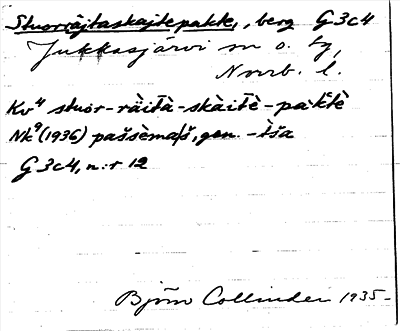 Stuorrâjtaskajtepakte, berg G3c4
Jukkasjärvi sn o. tg,
Norrb. l.
Kv⁴ stuor-ràità-skàitè-pàktè
Nk⁹ (1936) pašsèmàš, gen. -tša
G3c4, n:r 12
Björn Collinder 1935-